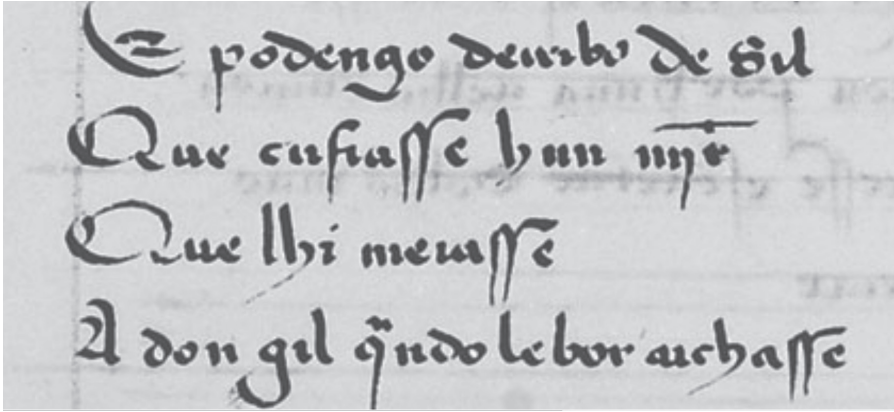 E podengo de Sil
Que custasse hun
Que lhi meiasse
A don gil qͣndo lebor achasse